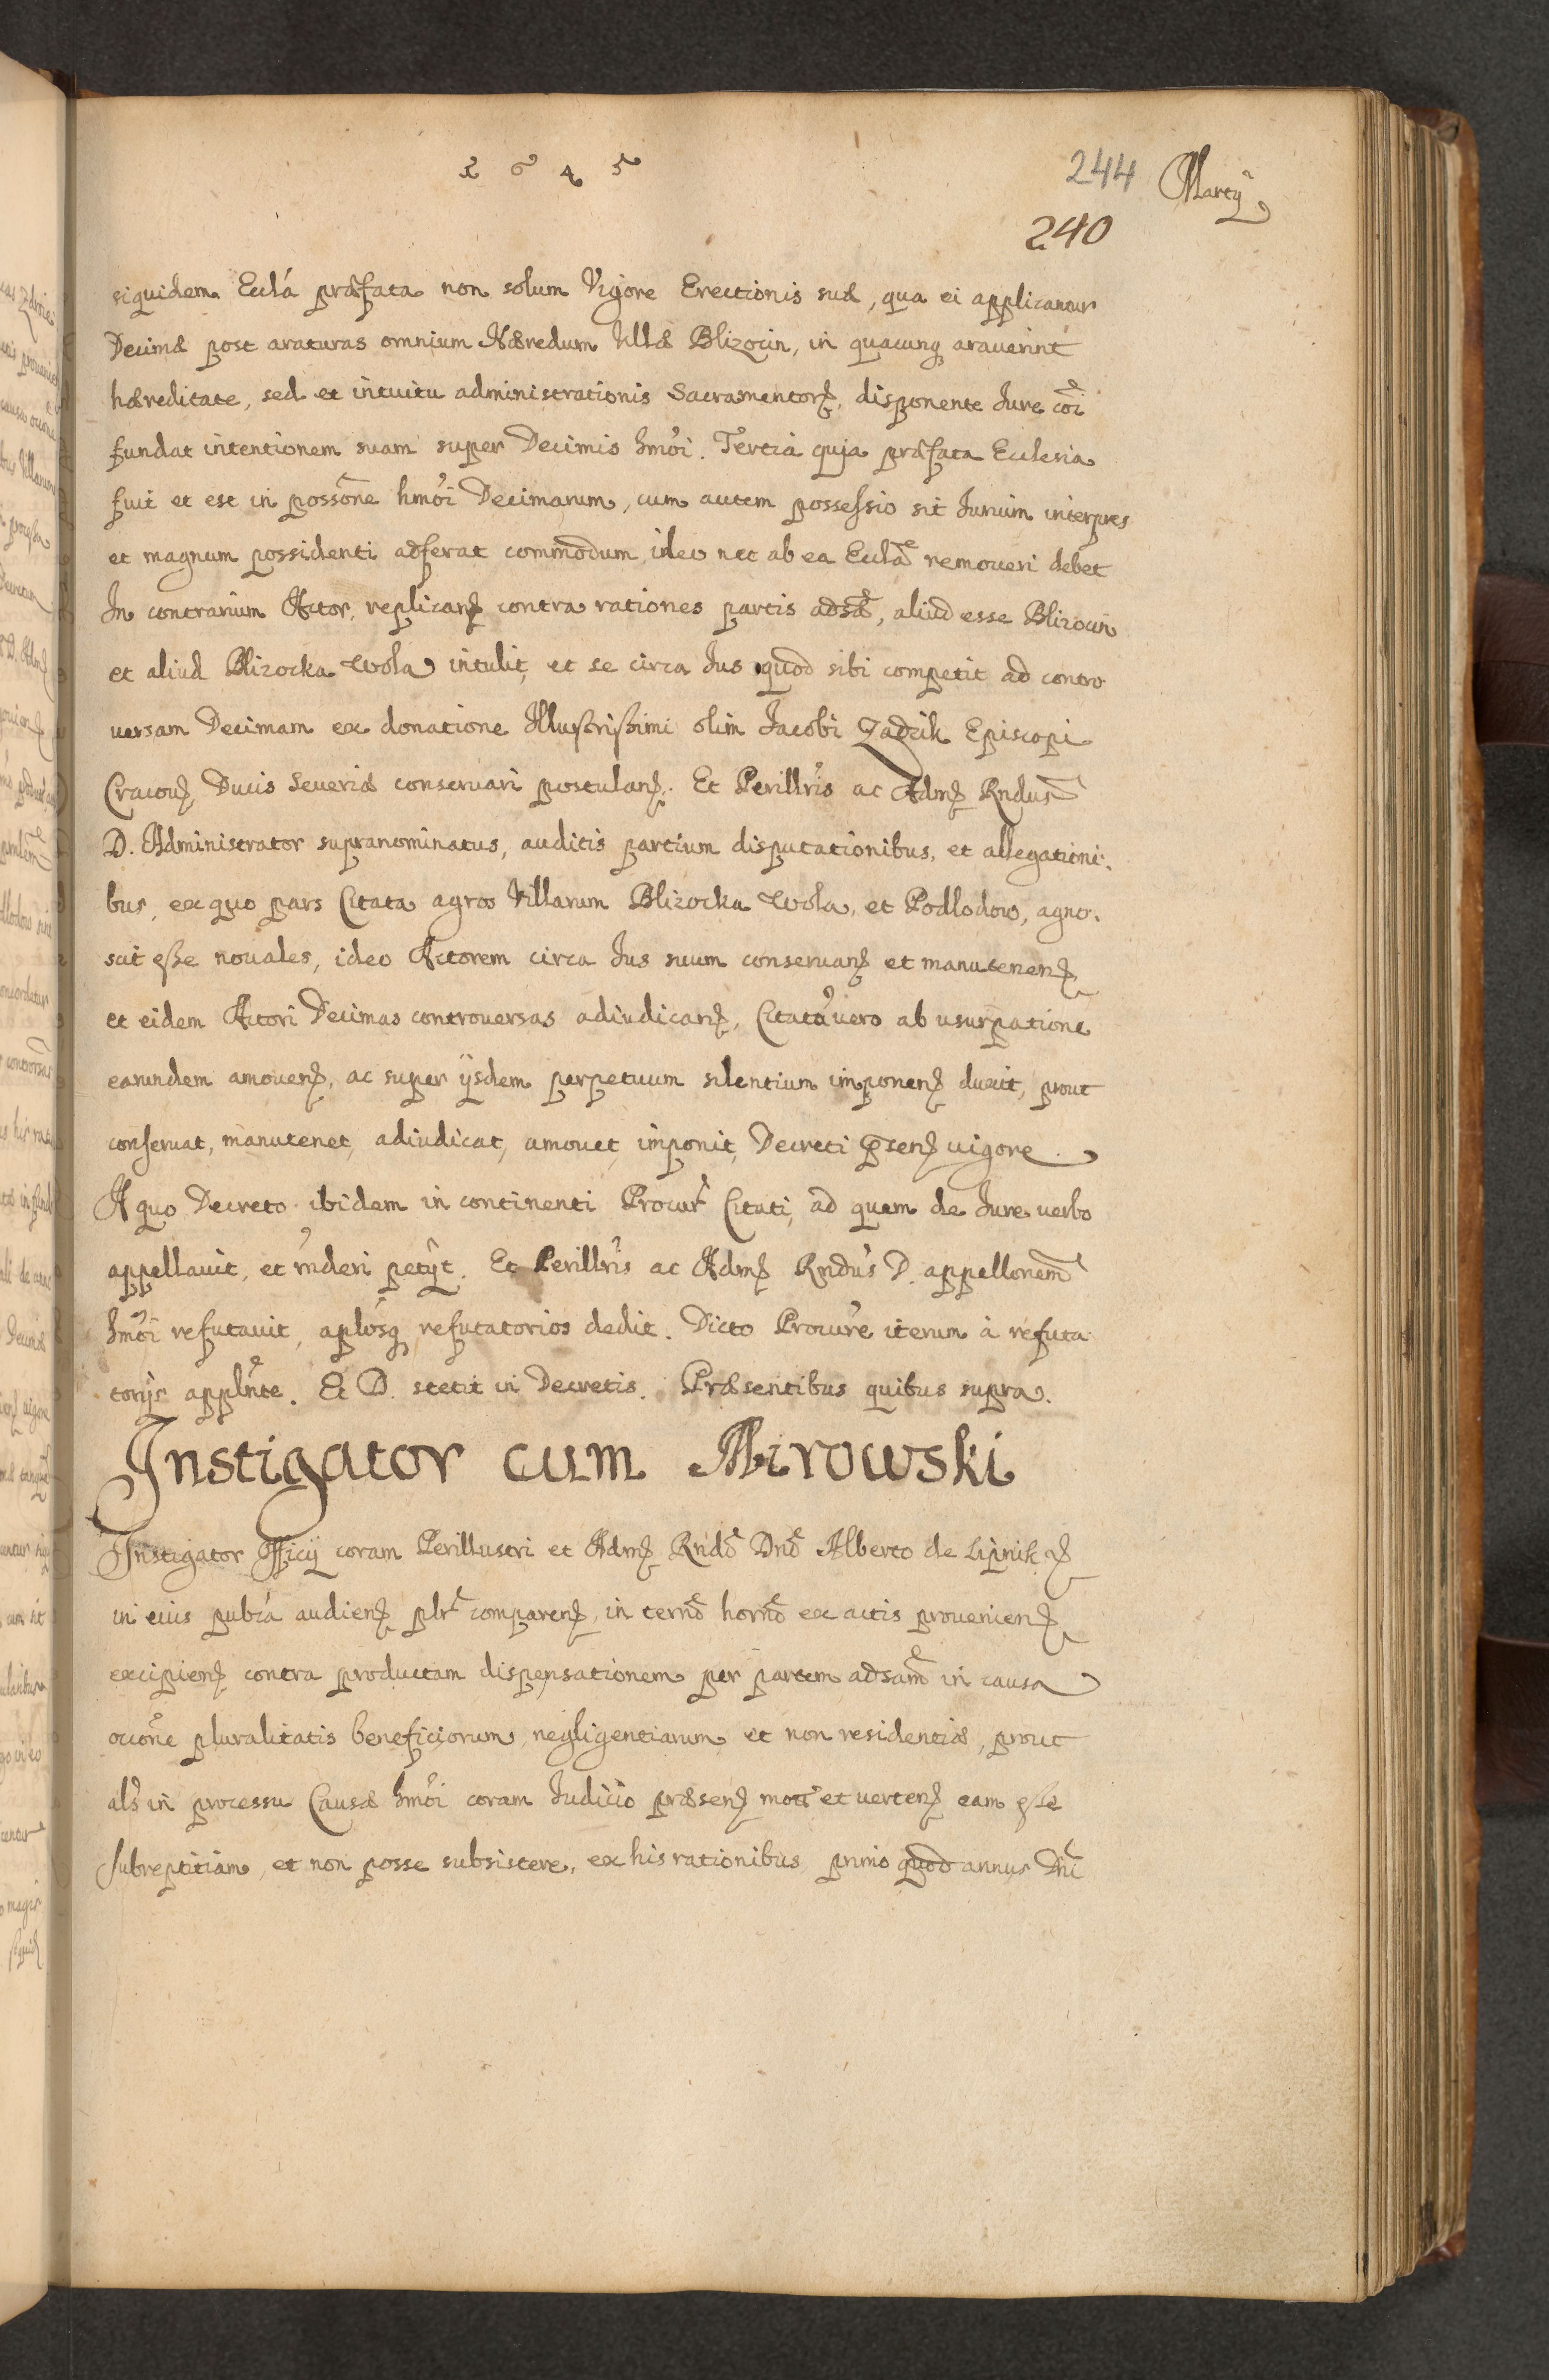 1645
244 Martÿ
240
siquidem Ecclá præfata non solum Vigore Erectionis suæ, qua ei applicantur
Decimæ post araturas omnium Hæredum Villæ Blizocin, in quacunq arauerint
hæreditate, sed et intuitu administrationis Sacramentorꝫ, disponente Iure cõi
fundat intentionem suam super Decimis hmõi. Tertia quia præfata Ecclesia
fuit et est in possõne hmõi Decimarum, cum autem possessio sit Iurium interpres
et magnum possidenti adferat commodum, ideo nec ab ea Ecclã remoueri debet
In contrarium Actor, replicanꝫ contra rationes partis adsæ, aliud esse Blizocin
et aliud Blizocka Wola intulit, et se circa Ius quod sibi competit ad contro
uersam Decimam ex donatione Illustrissimi olim Iacobi Zadzik Episcopi
Cracouꝫ, Ducis Seueriæ conseruari postulanꝫ. Et Perillris ac Admꝫ Rndus
D. Administrator supranominatus, auditis partium disputationibus, et allegationi:
bus, ex quo pars Citata agros Villarum Blizocka Wola, et Podlodow, agno:
scit esse nouales, ideo Actorem circa Ius suum conseruanꝫ et manutenenꝫ
et eidem Actori Decimas controuersas adiudicanꝫ, Citatũ uero ab usurpatione
earundem amouenꝫ, ac super ÿsdem perpetuum silentium imponenꝫ duxit, prout
conseruat, manutenet, adiudicat, amouet, imponit, Decreti p̃senꝫ uigore.
A quo Decreto ibidem in continenti Procur Citati, ad quem de Iure uerbo
appellauit, et r̃nderi petÿt. Et Perillris ac Admꝫ Rndus D. appellonem
hmõi refutauit, aplosq refutatorios dedit. Dicto Procure iterum à refuta
torÿs applnte. Et D. stetit in Decretis. Præsentibus quibus supra.
Instigator cum Mirowski
Instigator Officÿ coram Perillustri et Admꝫ Rndo Dno Alberto de Lipnik ꝫ
in eius publcá audienꝫ plr comparenꝫ, in termo horno ex actis prouenienꝫ
excipienꝫ contra productam dispensationem per partem adsam in causa
occõne pluralitatis beneficiorum, negligentiarum et non residentiæ, prout
als in processu Causæ hmõi coram Iudicio præsenꝫ mota et uertenꝫ eam esse
subreptitiam, et non posse subsistere, ex his rationibus primo quod annus Dni